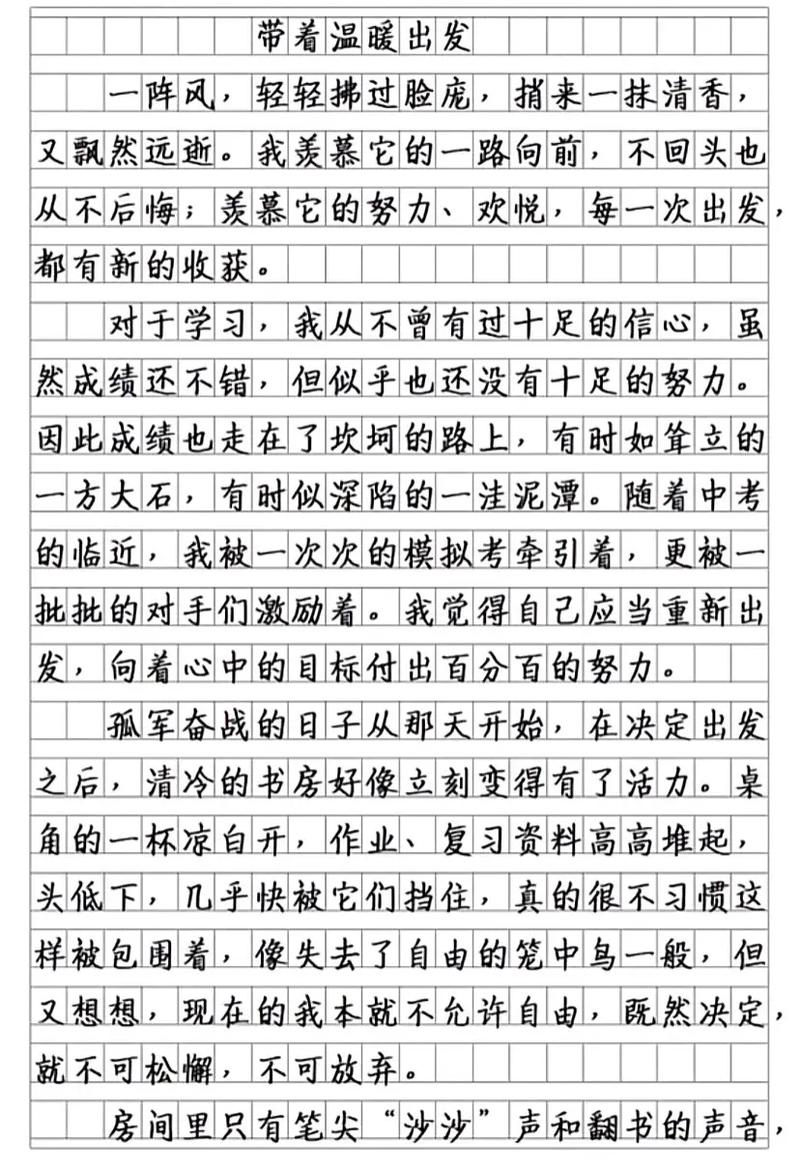 带着温暖出发
一阵风，轻轻拂过脸庞，捎来一抹清香，
又飘然远逝。我羡慕它的一路向前，不回头也
从不后悔；羡慕它的努力、欢悦，每一次出发，
都有新的收获。
对于学习，我从不曾有过十足的信心，虽
然成绩还不错，但似乎也还没有十足的努力。
因此成绩也走在了坎坷的路上，有时如耸立的
一方大石，有时似深陷的一洼泥潭。随着中考
的临近，我被一次次的模拟考牵引着，更被一
批批的对手们激励着。我觉得自己应当重新出
发，向着心中的目标付出百分百的努力。
孤军奋战的日子从那天开始，在决定出发
之后，清冷的书房好像立刻变得有了活力。桌
角的一杯凉白开，作业、复习资料高高堆起，
头低下，几乎快被它们挡住，真的很不习惯这
样被包围着，像失去了自由的笼中鸟一般，但
又想想，现在的我本就不允许自由，既然决定，
就不可松懈，不可放弃。
房间里只有笔尖“沙沙”声和翻书的声音，